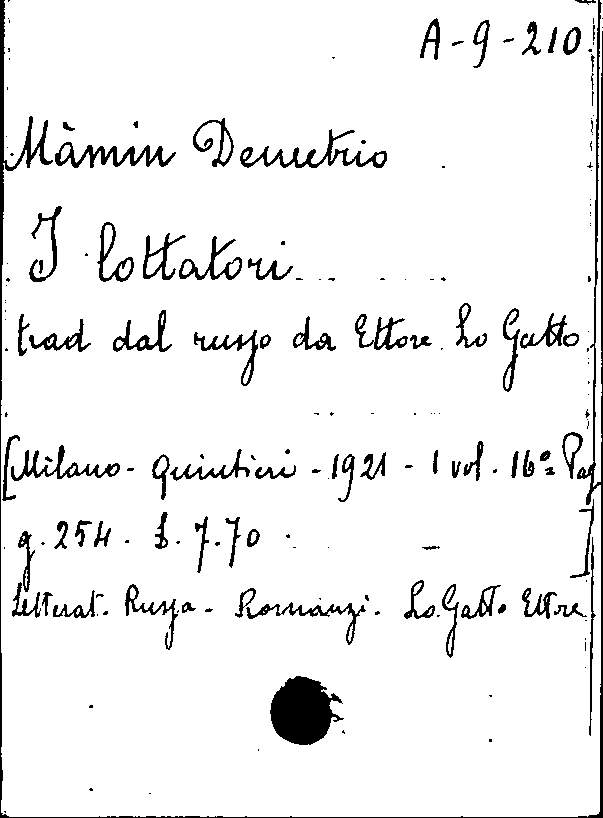 A-9-210
Màmin Demetrio
I lottatori
trad dal russo da Ettore Lo Gatto
[Milano - Quintieri - 1921 - 1 vol. 16º= Pag
g. 254. £. 7.70. — ]
Letterat. Russa - Romanzi. Lo Gatto Ettore